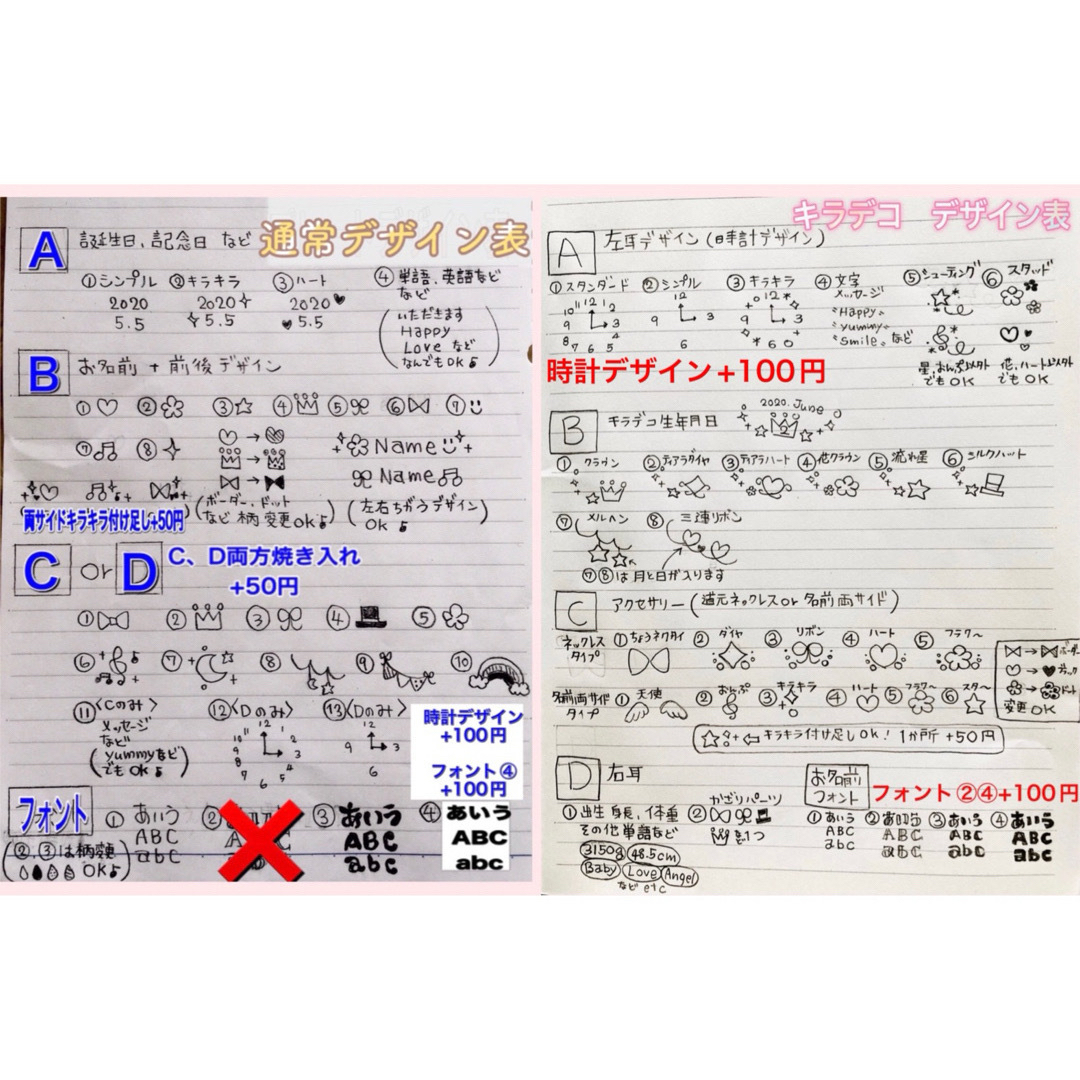 通常デザイン表
A 誕生日、記念日 など
①シンプル ②キラキラ ③ハート ④単語、英語など
など
2020 2020 2020
5.5 5.5 5.5
いただきます
Happy
Love など
なんでもOK♪
B お名前 + 前後デザイン
①♡ ② ③☆ ④ ⑤ ⑥ ⑦
⑦♫ ⑧
Name
Name♫
両サイドキラキラ付け足し+50円
(ボーダー、ドット
など 柄変更OK♪)
(左右ちがうデザイン
OK♪)
C or D C、D両方焼き入れ
+50円
① ② ③ ④ ⑤
⑥ ⑦ ⑧ ⑨ ⑩
⑪〈Cのみ〉 ⑫〈Dのみ〉 ⑬〈Dのみ〉
メッセージ
など
(yummyなど
でもOK♪)
12 1 2 3 4 5 6 7 8 9 10 11
12 3 6 9
時計デザイン
+100円
フォント④
+100円
フォント
(②、③は柄変更
OK♪)
① あいう
ABC
abc
②
③ あいう
ABC
abc
④ あいう
ABC
abc
キラデコ デザイン表
A 左耳デザイン(時計デザイン)
①スタンダード ②シンプル ③キラキラ ④文字 ⑤シューティング ⑥スタッド
メッセージ
"Happy"
"yummy"
"Smile"など
星、おんぷ以外
でもOK
花、ハート以外
でもOK
時計デザイン+100円
B キラデコ生年月日
2020. June
①クラウン ②ティアラダイヤ ③ティアラハート ④花クラウン ⑤流れ星 ⑥シルクハット
⑦メルヘン ⑧三連リボン
⑦⑧は月と日が入ります
C アクセサリー(首元ネックレスor名前両サイド)
ネックレス
タイプ
①ちょうネクタイ ②ダイヤ ③リボン ④ハート ⑤フラワー
ボーダー
ドット
変更OK
名前両サイド
タイプ
①天使 ②おんぷ ③キラキラ ④ハート ⑤フラワー ⑥スター
☆ ⇦キラキラ付け足しOK! 1か所 +50円
D 右耳
①出生身長、体重
その他単語など
3150g 48.5cm
Baby Love Angel
など etc
②かざりパーツ
を1つ
お名前
フォント
フォント②④+100円
①あいう ②あいう ③あいう ④あいう
ABC ABC ABC ABC
abc abc abc abc